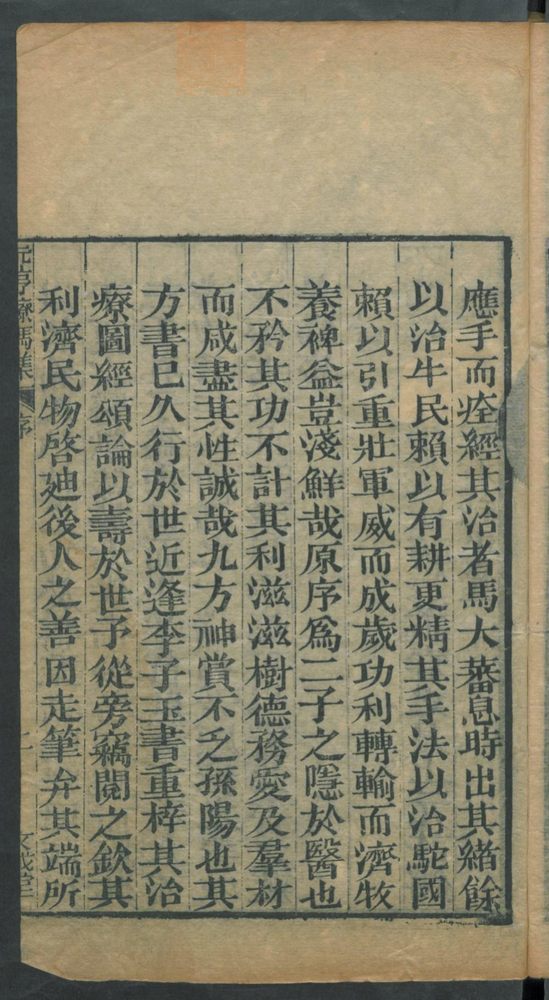 應手而痊經其治者馬大蕃息時出其緒餘
以治牛民賴以有耕更精其手法以治駝國
賴以引重壯軍威而成歲功利轉輸而濟牧
養裨益豈淺鮮哉原序爲二子之隱於醫也
不矜其功不計其利滋滋樹德務愛及羣材
而咸盡其性誠哉九方神賞不乏孫陽也其
方書已久行於世近逢李子玉書重梓其治
療圖經頌論以壽於世予從旁竊閱之欽其
利濟民物啓廸後人之善因走筆弁其端所
元亨療馬集 序